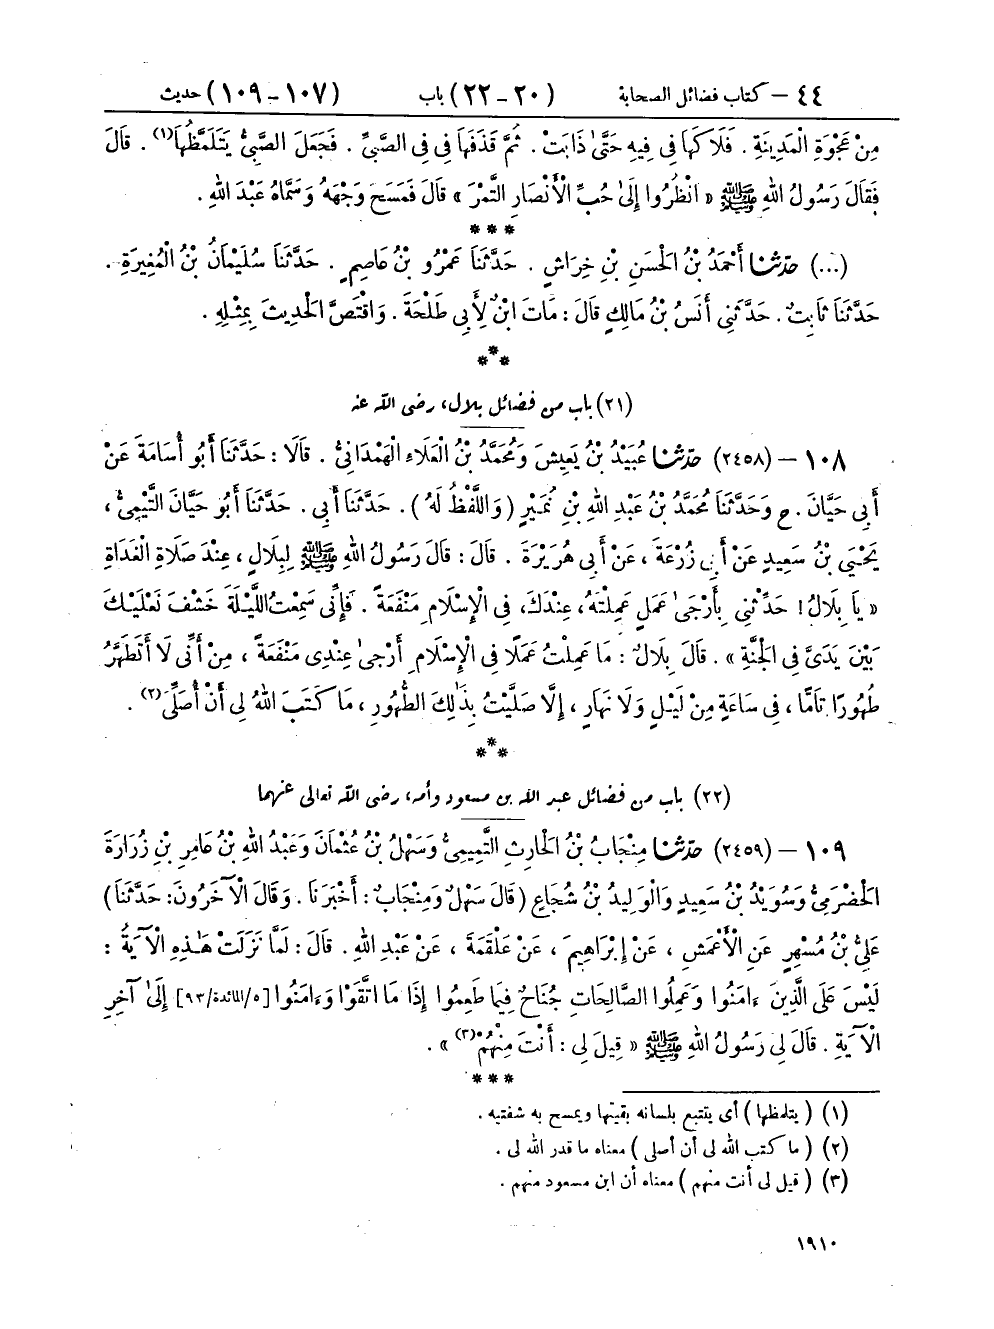 ٤٤ – كتاب فضائل الصحابة (٢٠-٢٢) باب (١٠٧-١٠٩) حديث
مِنْ عَجْوَةِ الْمَدِينَةِ . فَلَاكَهَا فِى فِيهِ حَتَّىٰ ذَابَتْ . ثُمَّ قَذَفَهَا فِى فِى الصَّبِىِّ . فَجَعَلَ الصَّبِىُّ يَتَلَمَّظُهَا(١) . قَالَ
فَقَالَ رَسُولُ اللهِ ﷺ « انْظُرُوا إِلَىٰ حُبِّ الْأَنْصَارِ التَّمْرَ » قَالَ فَمَسَحَ وَجْهَهُ وَسَمَّاهُ عَبْدَ اللهِ .
***
(...) حَدَّثَنَا أَحْمَدُ بْنُ الْحَسَنِ بْنِ خِرَاشٍ . حَدَّثَنَا عَمْرُو بْنُ عَاصِمٍ . حَدَّثَنَا سُلَيْمَانُ بْنُ الْمُغِيرَةِ .
حَدَّثَنَا ثَابِتٌ . حَدَّثَنِى أَنَسُ بْنُ مَالِكٍ قَالَ : مَاتَ ابْنٌ لِأَبِى طَلْحَةَ . وَاقْتَصَّ الْحَدِيثَ بِمِثْلِهِ .
***
(٢١) باب من فضائل بلال، رضى الله عنه
١٠٨ – (٢٤٥٨) حَدَّثَنَا عُبَيْدُ بْنُ يَعِيشَ وَمُحَمَّدُ بْنُ الْعَلَاءِ الْهَمْدَانِىُّ . قَالَا : حَدَّثَنَا أَبُو أُسَامَةَ عَنْ
أَبِى حَيَّانَ . ح وَحَدَّثَنَا مُحَمَّدُ بْنُ عَبْدِ اللهِ بْنِ نُمَيْرٍ ( وَاللَّفْظُ لَهُ ) . حَدَّثَنَا أَبِى . حَدَّثَنَا أَبُو حَيَّانَ التَّيْمِىُّ ،
يَحْيَىٰ بْنُ سَعِيدٍ عَنْ أَبِى زُرْعَةَ ، عَنْ أَبِى هُرَيْرَةَ . قَالَ : قَالَ رَسُولُ اللهِ ﷺ لِبِلَالٍ ، عِنْدَ صَلَاةِ الْغَدَاةِ
« يَا بِلَالُ ! حَدِّثْنِى بِأَرْجَىٰ عَمَلٍ عَمِلْتَهُ ، عِنْدَكَ ، فِى الْإِسْلَامِ مَنْفَعَةً . فَإِنِّى سَمِعْتُ اللَّيْلَةَ خَشْفَ نَعْلَيْكَ
بَيْنَ يَدَىَّ فِى الْجَنَّةِ » . قَالَ بِلَالٌ : مَا عَمِلْتُ عَمَلًا فِى الْإِسْلَامِ أَرْجَىٰ عِنْدِى مَنْفَعَةً ، مِنْ أَنِّى لَا أَتَطَهَّرُ
طُهُورًا تَامًّا ، فِى سَاعَةٍ مِنْ لَيْلٍ وَلَا نَهَارٍ ، إِلَّا صَلَّيْتُ بِذَٰلِكَ الطُّهُورِ ، مَا كَتَبَ اللهُ لِى أَنْ أُصَلِّىَ(٢) .
***
(٢٢) باب من فضائل عبد الله بن مسعود وأمه، رضى الله تعالى عنهما
١٠٩ – (٢٤٥٩) حَدَّثَنَا مِنْجَابُ بْنُ الْحَارِثِ التَّمِيمِىُّ وَسَهْلُ بْنُ عُثْمَانَ وَعَبْدُ اللهِ بْنُ عَامِرِ بْنِ زُرَارَةَ
الْحَضْرَمِىُّ وَسُوَيْدُ بْنُ سَعِيدٍ وَالْوَلِيدُ بْنُ شُجَاعٍ ( قَالَ سَهْلٌ وَمِنْجَابٌ : أَخْبَرَنَا . وَقَالَ الْآخَرُونَ: حَدَّثَنَا )
عَلِىُّ بْنُ مُسْهِرٍ عَنِ الْأَعْمَشِ ، عَنْ إِبْرَاهِيمَ ، عَنْ عَلْقَمَةَ ، عَنْ عَبْدِ اللهِ . قَالَ : لَمَّا نَزَلَتْ هَـٰذِهِ الْآيَةُ :
لَيْسَ عَلَى الَّذِينَ ءَامَنُوا وَعَمِلُوا الصَّالِحَاتِ جُنَاحٌ فِيمَا طَعِمُوا إِذَا مَا اتَّقَوْا وَءَامَنُوا [٥/المائدة/٩٣] إِلَىٰ آخِرِ
الْآيَةِ . قَالَ لِى رَسُولُ اللهِ ﷺ « قِيلَ لِى : أَنْتَ مِنْهُمْ(٣) » .
***
(١) ( يتلمظها ) أى يتتبع بلسانه بقيتها ويمسح به شفتيه .
(٢) ( ما كتب الله لى أن أصلى ) معناه ما قدر الله لى .
(٣) ( قيل لى أنت منهم ) معناه أن ابن مسعود منهم .
١٩١٠